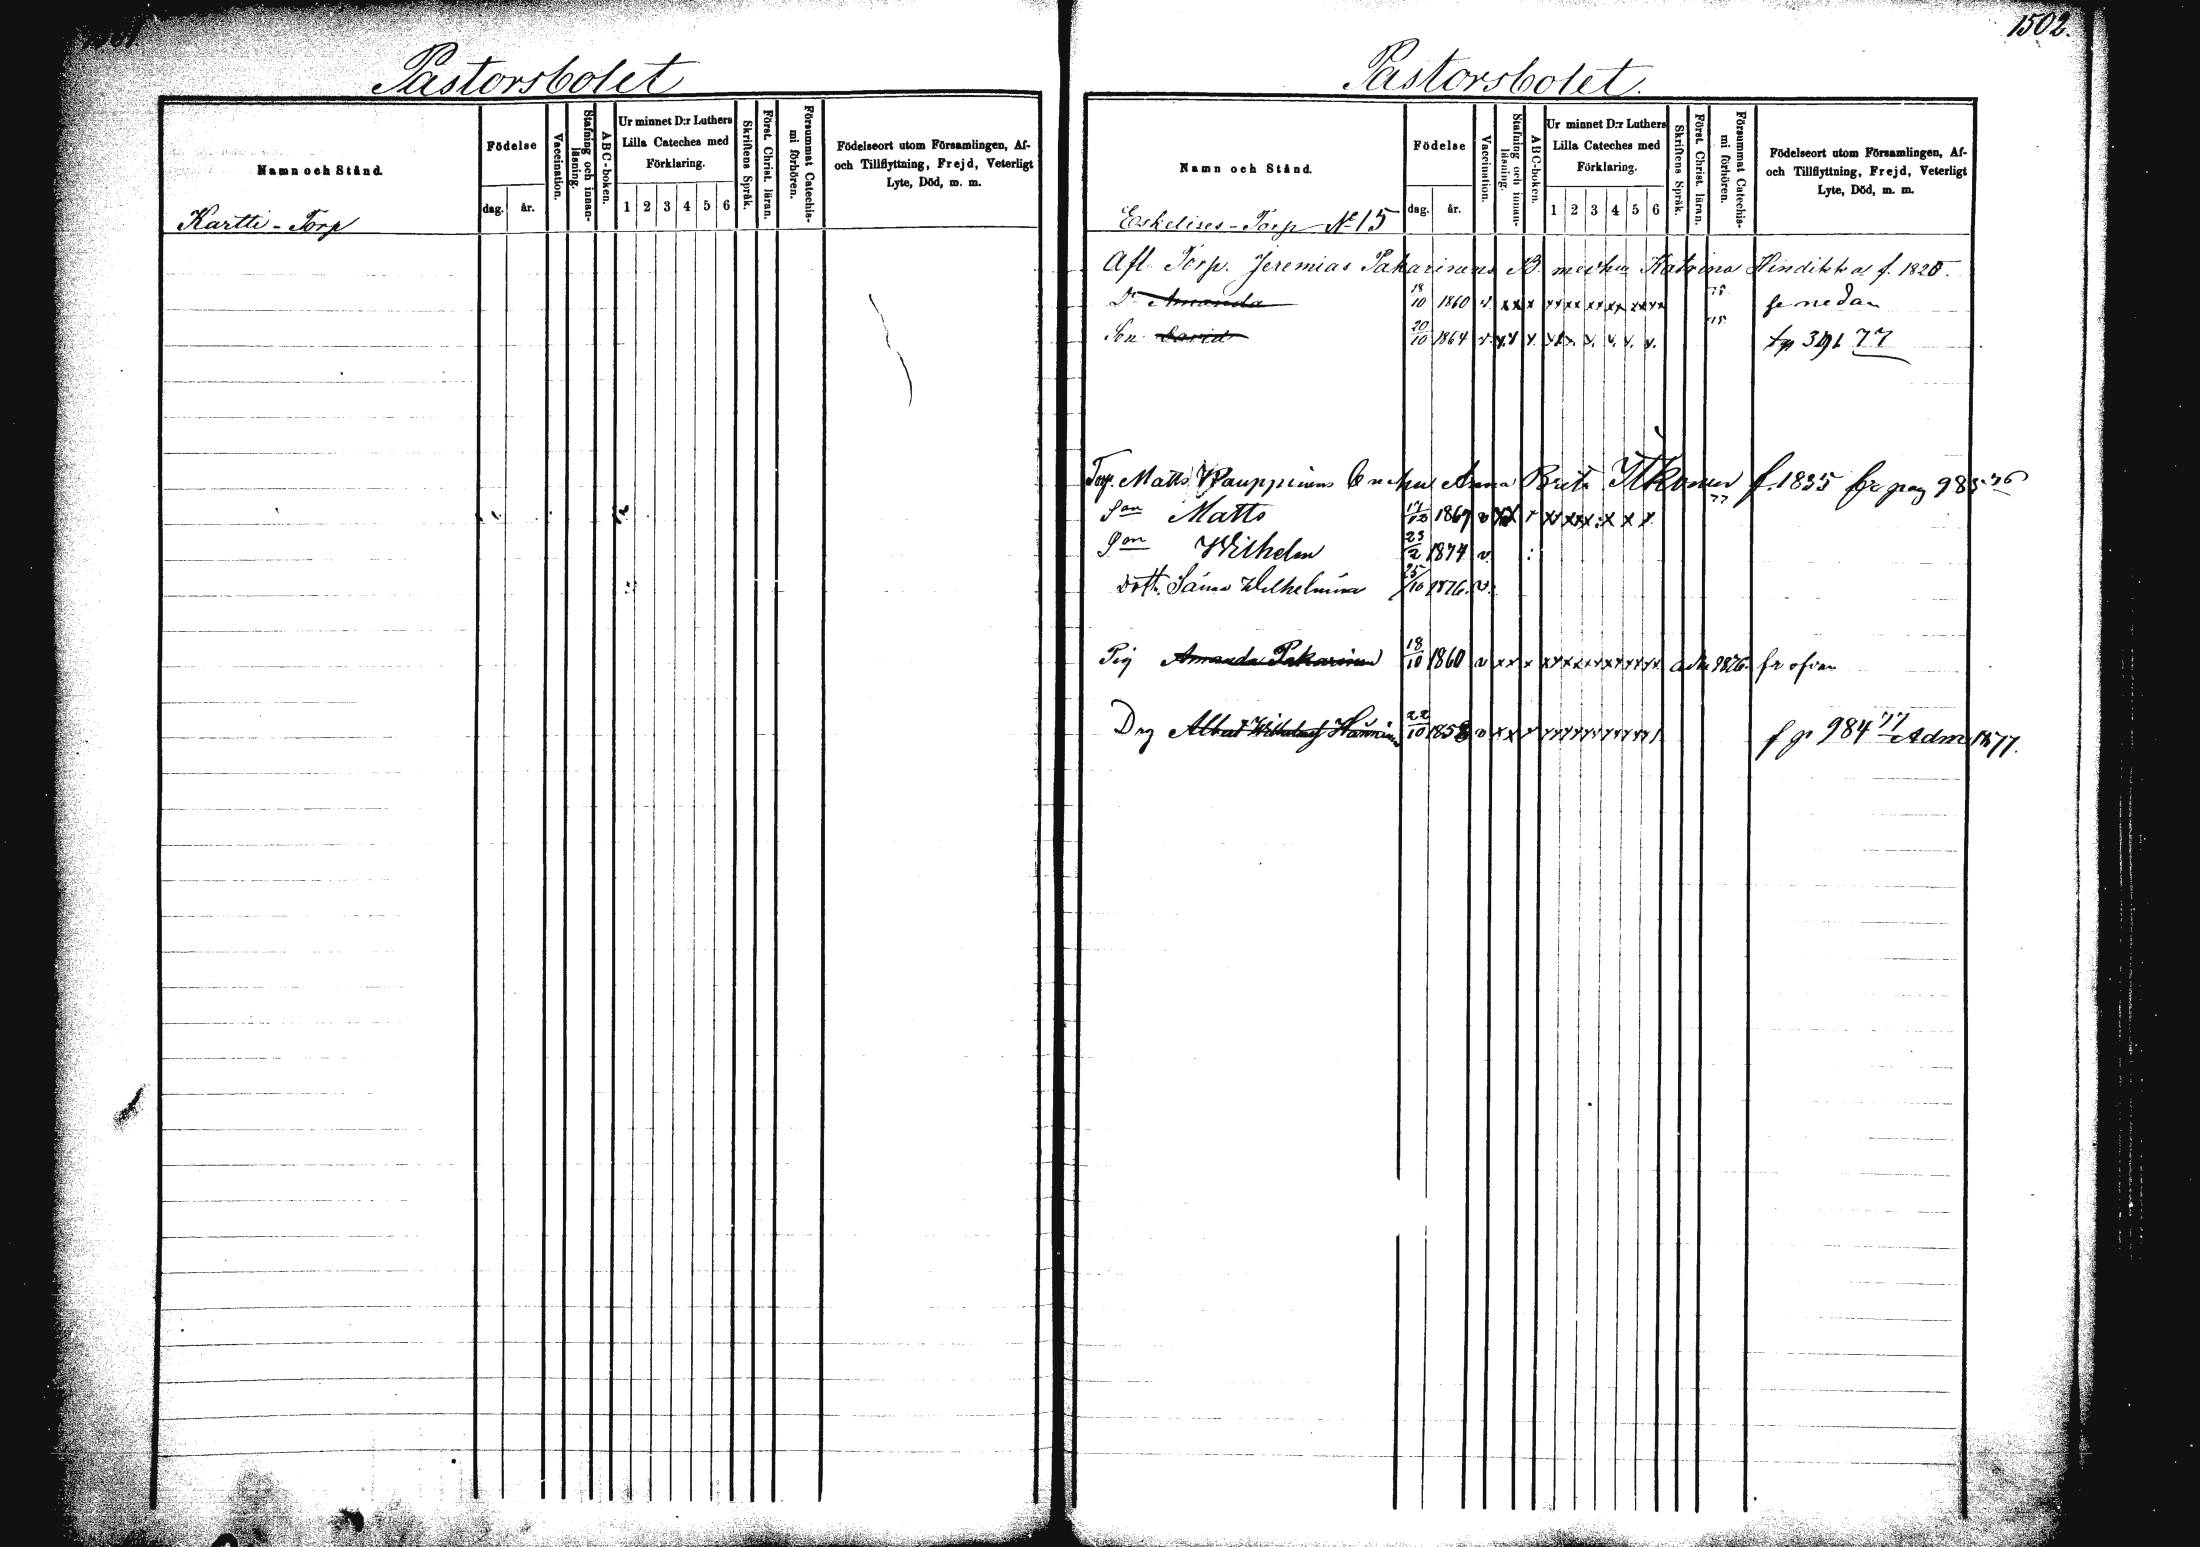 Pastorsbolet
Namn och Stånd.
Födelse
dag.
år.
Vaccination.
Stafning och innan-
läsning.
ABC-boken.
Ur minnet D:r Luthers
Lilla Cateches med
Förklaring.
1 2 3 4 5 6
Skriftens Språk.
Först. Christ. läran.
Försummat Catechis-
mi förhören.
Födelseort utom Församlingen, Af-
och Tillflyttning, Frejd, Veterligt
Lyte, Död, m. m.
Kartti-Torp
1502.
Pastorsbolet.
Namn och Stånd.
Födelse
dag.
år.
Vaccination.
Stafning och innan-
läsning.
ABC-boken.
Ur minnet D:r Luthers
Lilla Cateches med
Förklaring.
1 2 3 4 5 6
Skriftens Språk.
Först. Christ. läran.
Försummat Catechis-
mi förhören.
Födelseort utom Församlingen, Af-
och Tillflyttning, Frejd, Veterligt
Lyte, Död, m. m.
Eskelises-Torp No 15
Afl. Torp. Jeremias Pakarinens Katrina Hindikka f. 1820.
Dr Amanda 18/10 1860 v xx x xx xx xx xx xx xx 75 se nedan
Son David 20/10 1864 v x 75 77
Torp. Matts Kauppinens Enchu Anna Brita Itkonen f. 1835 fr pag 985 76
Son Matts 17/12 1867 v xx 77
Son Wilhelm 23/2 1874 v.
Dott. Sanna Wilhelmina 25/10 1876. v.
Pig Amanda Pakarinen 18/10 1860 v xx x adm 1876. fr ofvan
Drg Albert Wilhelm Hänninen 22/10 1858 v xx f p 984 77 Adm 1877.